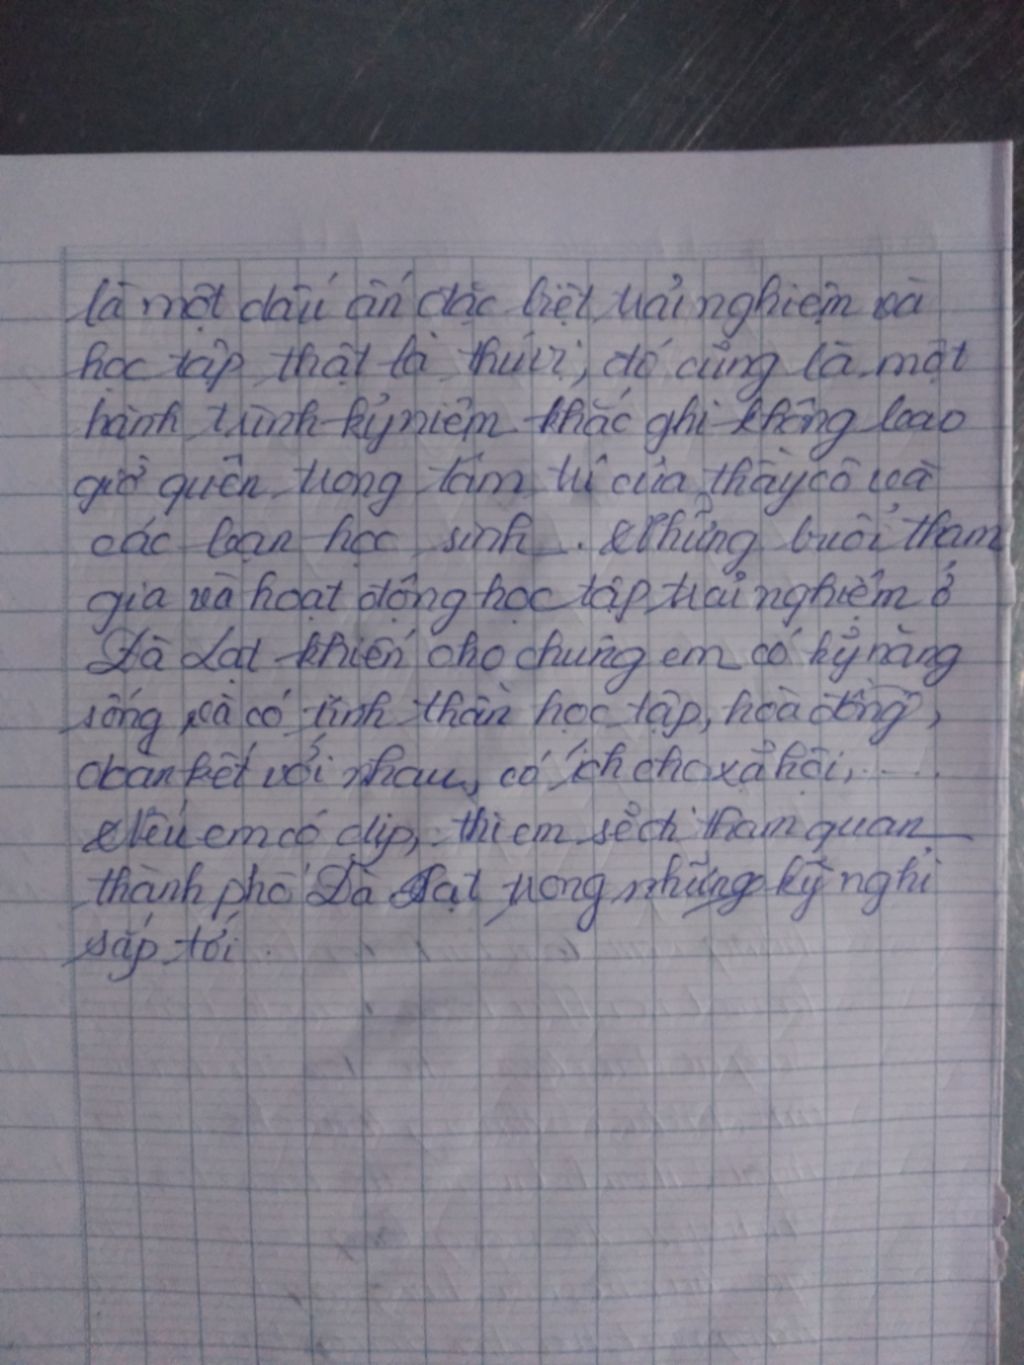 là một dấu ấn đặc biệt, trải nghiệm và
học tập thật là thú vị, đó cũng là một
hành trình kỷ niệm khắc ghi không bao
giờ quên trong tâm trí của thầy cô và
các bạn học sinh. Những buổi tham
gia và hoạt động học tập, trải nghiệm ở
Đà Lạt khiến cho chúng em có kỹ năng
sống và có tinh thần học tập, hòa đồng,
đoàn kết với nhau, có ích cho xã hội,....
Nếu em có dịp, thì em sẽ đi tham quan
thành phố Đà Lạt trong những kỳ nghỉ
sắp tới.